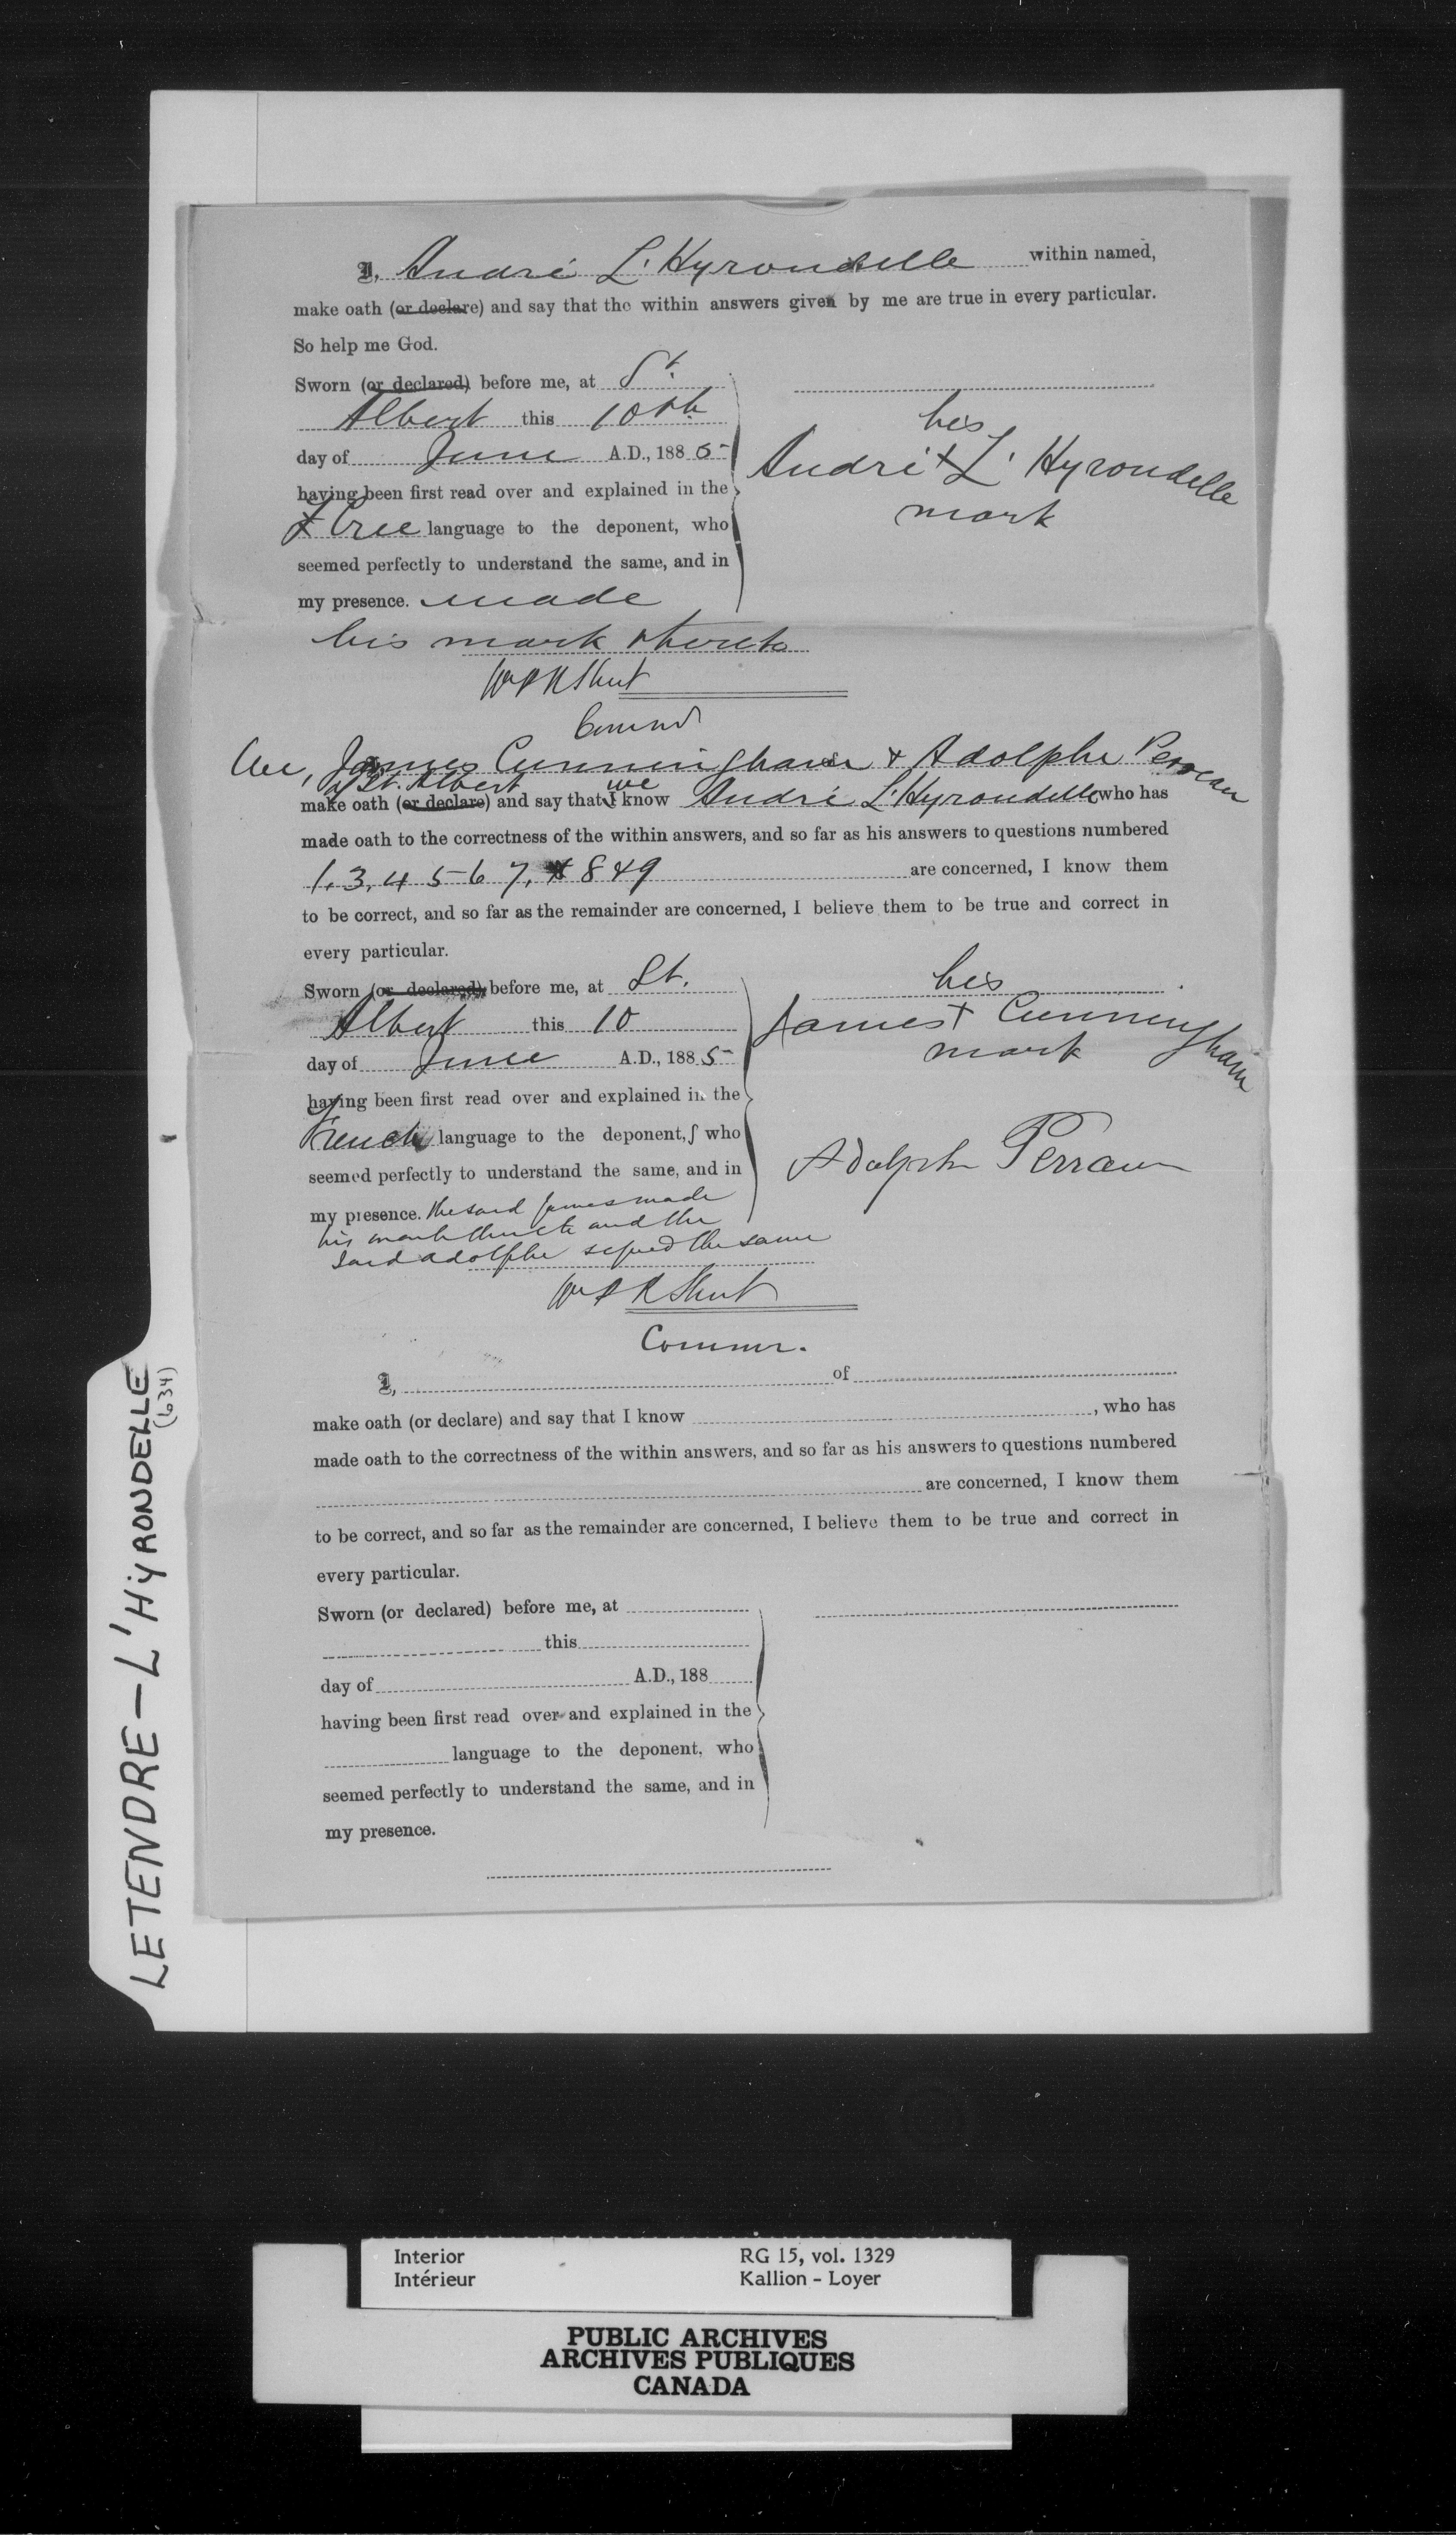 I, André L'Hyrondelle within named,
make oath (or declare) and say that the within answers given by me are true in every particular.
So help me God.
Sworn (or declared) before me, at St.
Albert this 10th
day of June A.D., 1885
having been first read over and explained in the
Cree language to the deponent, who
seemed perfectly to understand the same, and in
my presence. made
his mark thereto
his
André + L'Hyrondelle
mark
We, James Cunningham & Adolphe Perreau
of St. Albert
make oath (or declare) and say that I we know André L'Hyrondelle who has
made oath to the correctness of the within answers, and so far as his answers to questions numbered
1, 3, 4 5 6 7, 8 & 9 are concerned, I know them
to be correct, and so far as the remainder are concerned, I believe them to be true and correct in
every particular.
Sworn (or declared) before me, at St.
Albert this 10
day of June A.D., 1885
having been first read over and explained in the
French language to the deponent, s who
seemed perfectly to understand the same, and in
my presence. the said James made
his mark thereto and the
said Adolphe signed the same
his
James + Cunningham
mark
Adolph Perraur
Commr.
I, of
make oath (or declare) and say that I know , who has
made oath to the correctness of the within answers, and so far as his answers to questions numbered
are concerned, I know them
to be correct, and so far as the remainder are concerned, I believe them to be true and correct in
every particular.
Sworn (or declared) before me, at
this
day of A.D., 188
having been first read over and explained in the
language to the deponent, who
seemed perfectly to understand the same, and in
my presence.
LETENDRE–L'HYRONDELLE
(634)
Interior RG 15, vol. 1329
Intérieur Kallion - Loyer
PUBLIC ARCHIVES
ARCHIVES PUBLIQUES
CANADA